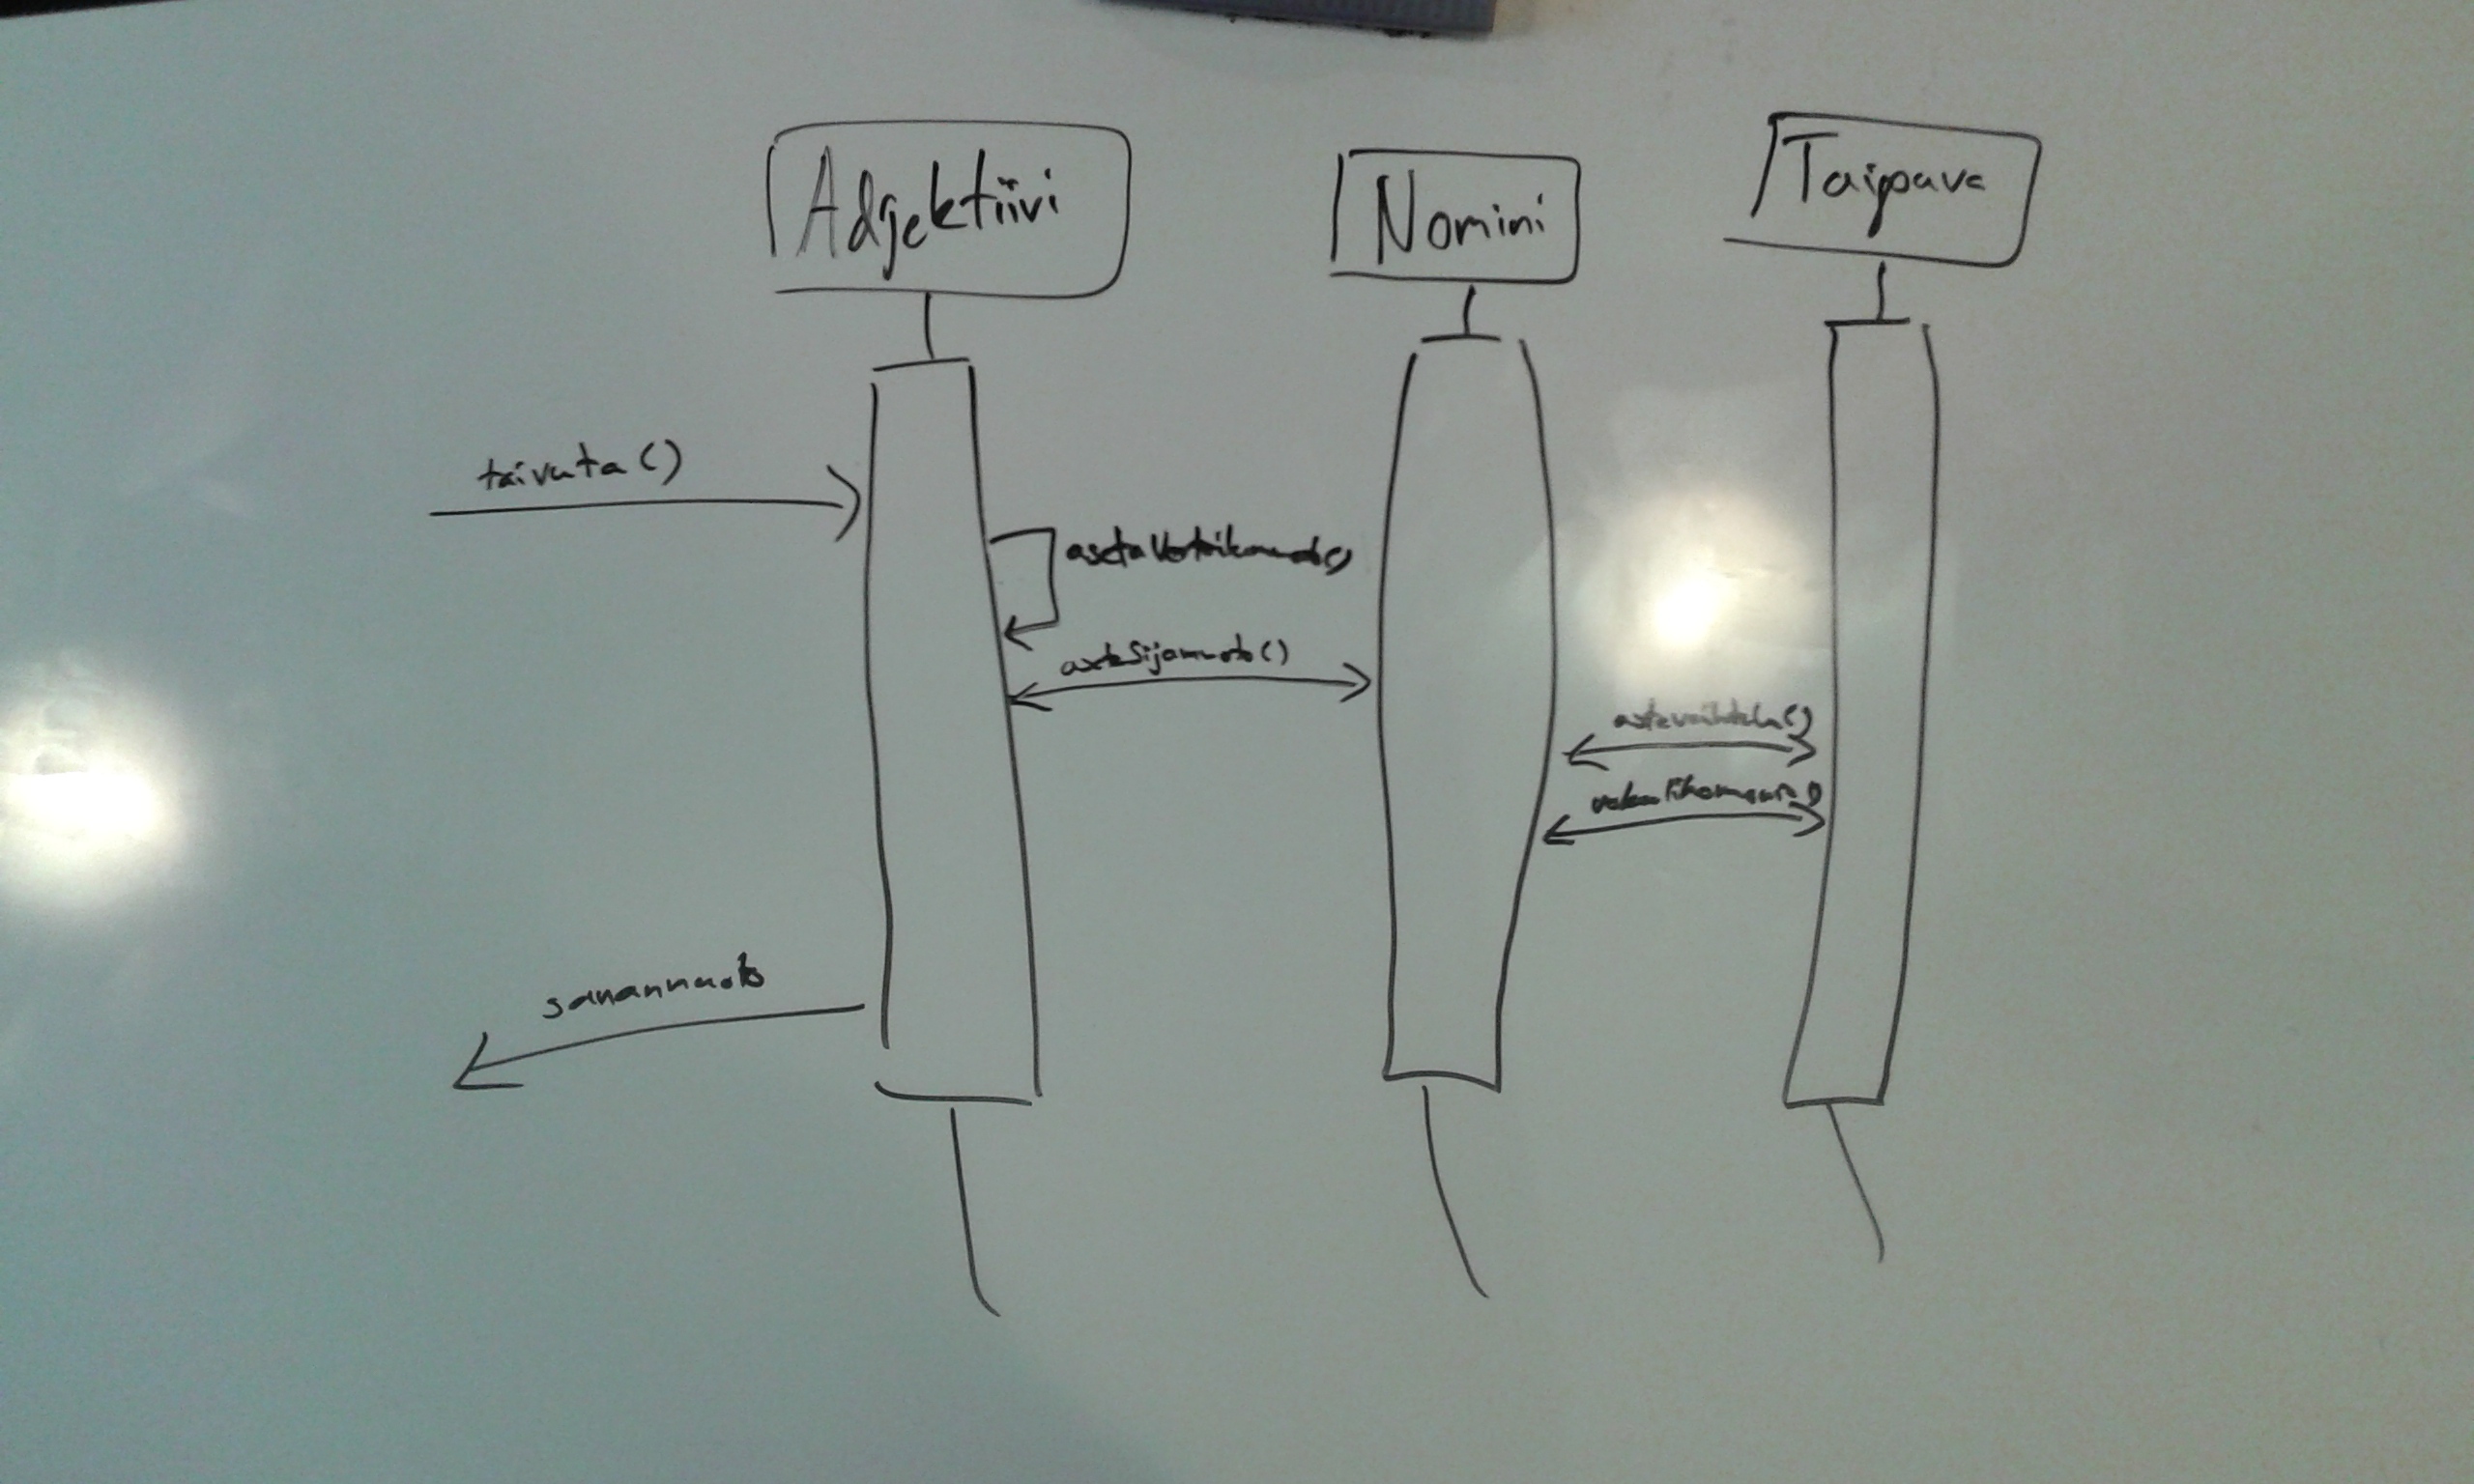 Adjektiivi
Nomini
Taipuva
taivuta()
asetaVertailumuoto()
astaSijamuoto()
astevaihtelu()
sananmuoto